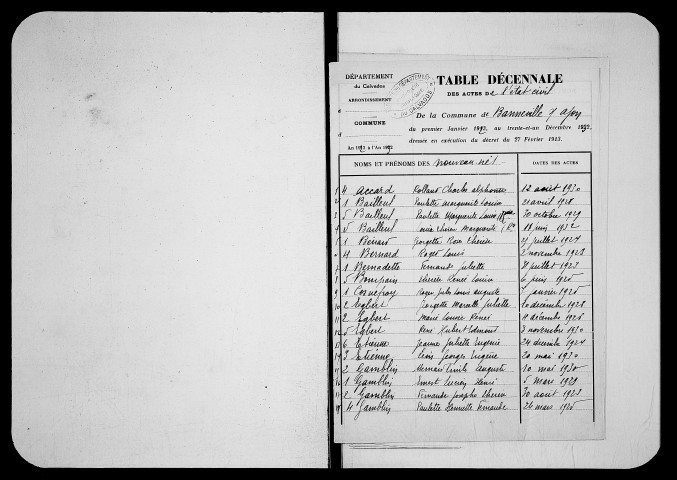 DÉPARTEMENT
du Calvados
ARRONDISSEMENT
COMMUNE
d
An 1923 à l'An 1932
TABLE DÉCENNALE
DES ACTES De l'état civil
De la Commune de Banneville s/ Ajon
du premier Janvier 1923, au trente-et-un Décembre 1932,
dressée en exécution du décret du 27 Février 1913.
NOMS ET PRÉNOMS DES nouveau nés
DATES DES ACTES
1 4 Accard Rolland Charles Alphonse 12 août 1930
2 1 Bailleul Paulette Marguerite Louise 21 avril 1928
3 5 Bailleul Paulette Marguerite Louise 30 octobre 1929
4 5 Bailleul Marguerite 18 juin 1932
5 1 Bénard Georgette Rose Thérèse juillet 1924
4 Bernard Roger Louis 2 novembre 1928
1 Bernadette Fernande Juliette juillet 1923
5 Bompain Thérèse Renée Louise 6 juin 1925
1 Cornefroy Roger Jules Louis Auguste janvier 1925
2 Egbert Georgette Marcelle Juliette 10 décembre 1928
2 Egbert Marie Louise Renée 11 décembre 1925
5 Egbert René Hubert Edmond 3 novembre 1930
6 Etienne Jeanne Juliette Eugénie 24 décembre 1924
3 Etienne Georges Eugène 20 mai 1930
2 Gamblin Emile Auguste 10 mai 1930
1 Gamblin Ernest Lucien Henri 5 mars 1929
2 Gamblin Fernande Josephe Thérèse 30 août 1923
4 Gamblin Paulette Henriette Fernande 24 mars 1925